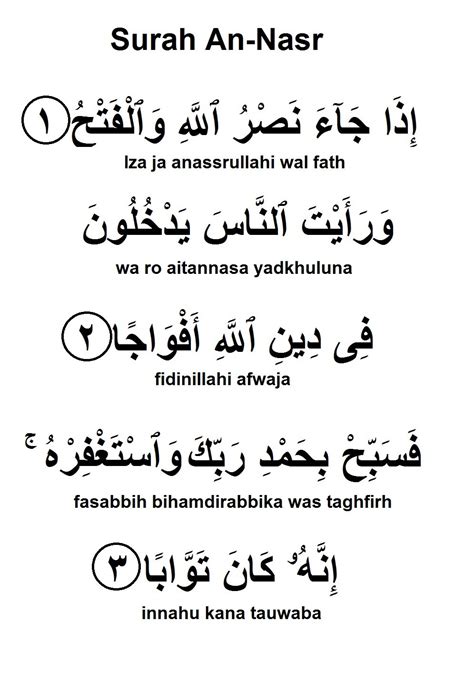 Surah An-Nasr
إِذَا جَآءَ نَصْرُ ٱللَّهِ وَٱلْفَتْحُ ١
Iza ja anassrullahi wal fath
وَرَأَيْتَ ٱلنَّاسَ يَدْخُلُونَ
wa ro aitannasa yadkhuluna
فِى دِينِ ٱللَّهِ أَفْوَاجًا ٢
fidinillahi afwaja
فَسَبِّحْ بِحَمْدِ رَبِّكَ وَٱسْتَغْفِرْهُ ۚ
fasabbih bihamdirabbika was taghfirh
إِنَّهُۥ كَانَ تَوَّابًا ٣
innahu kana tauwaba